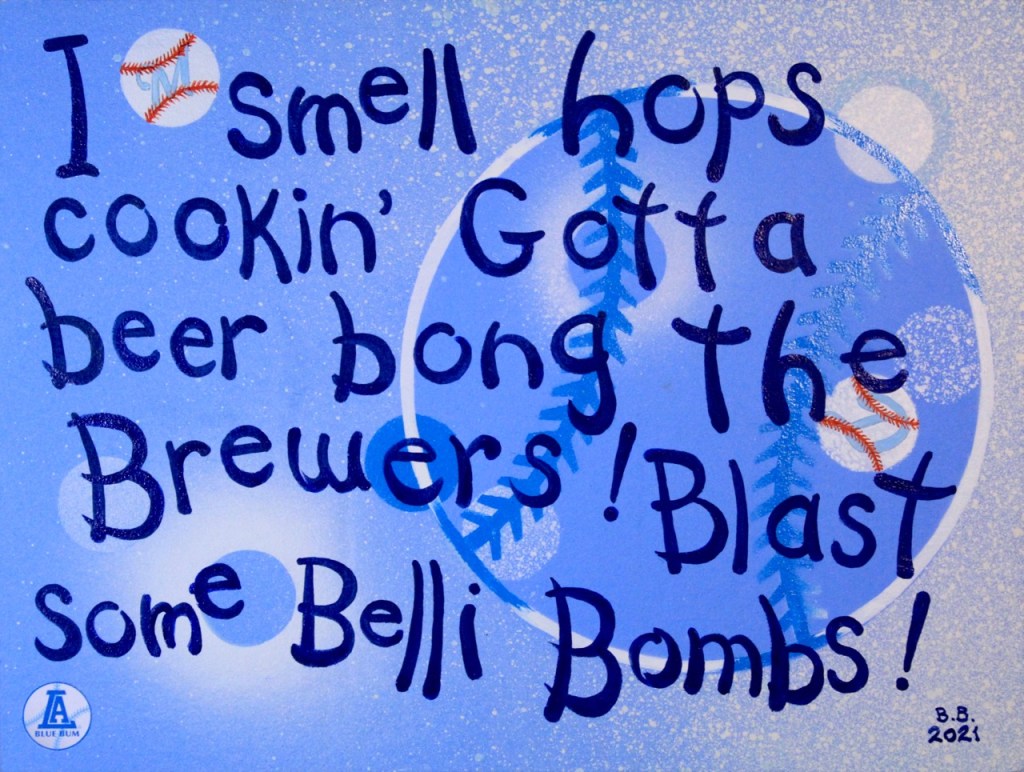 I smell hops
cookin' Gotta
beer bong the
Brewers! Blast
some Belli Bombs!
M
LA
BLUE BUM
B.B.
2021